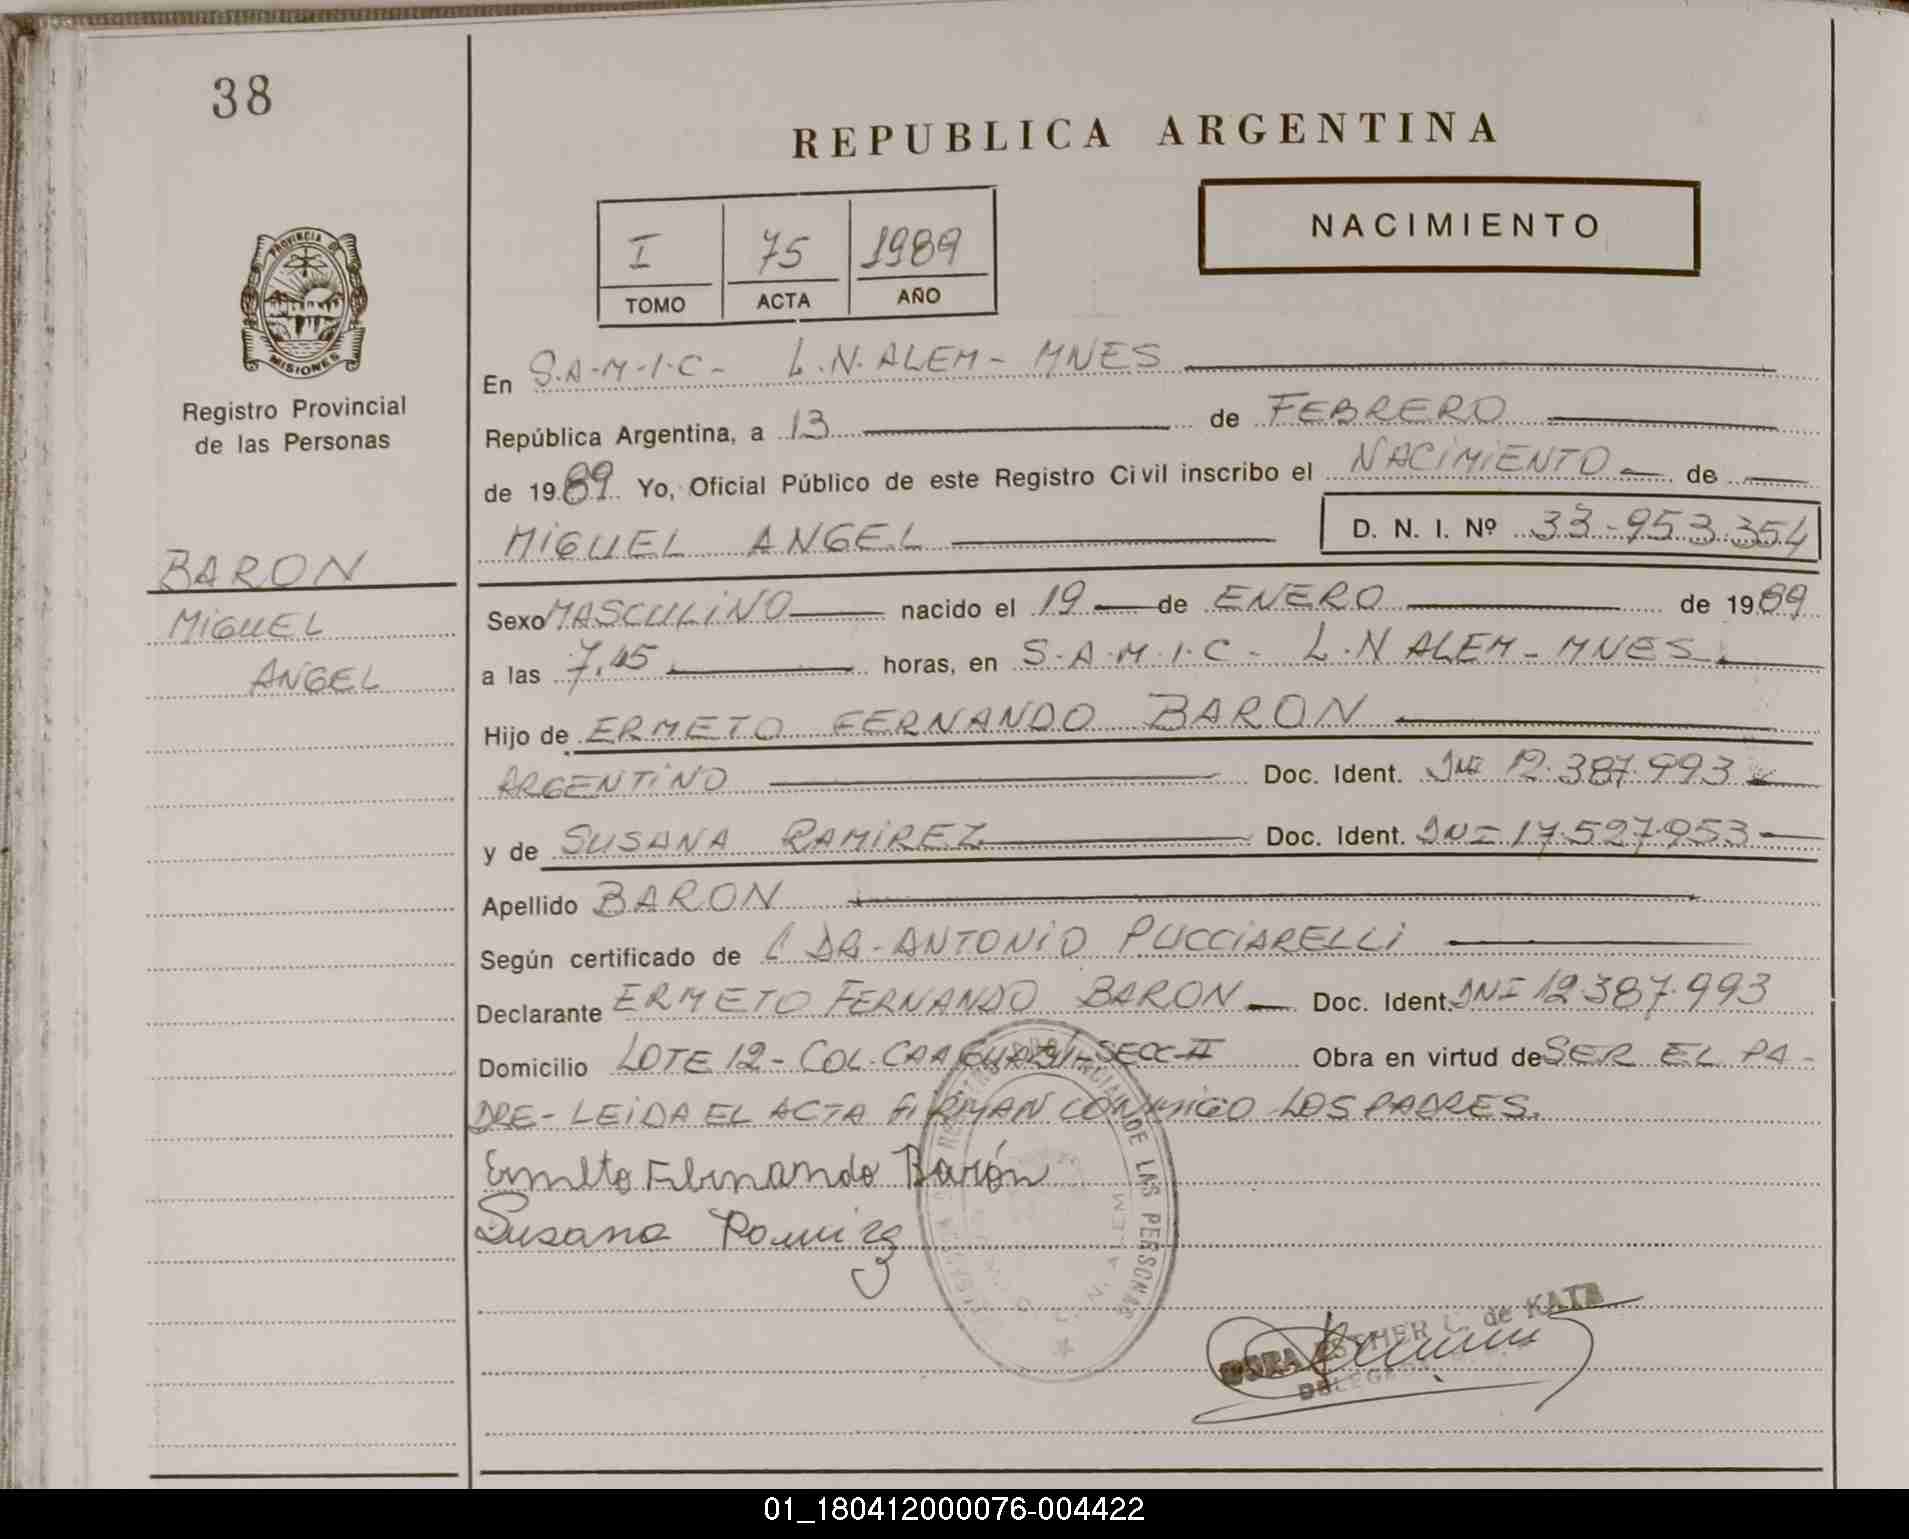 38
REPUBLICA ARGENTINA
NACIMIENTO
I 75 1989
TOMO ACTA AÑO
PROVINCIA DE
MISIONES
Registro Provincial
de las Personas
BARON
MIGUEL
ANGEL
En S.A.M.I.C- L.N.ALEM- MNES
República Argentina, a 13 de FEBRERO
de 1989 Yo, Oficial Público de este Registro Civil inscribo el NACIMIENTO de
MIGUEL ANGEL D. N. I. Nº 33-953.354
Sexo MASCULINO nacido el 19 de ENERO de 1989
a las 7,45 horas, en S.A.M.I.C- L.N ALEM- MNES
Hijo de ERMETO FERNANDO BARON
ARGENTINO Doc. Ident. DNI 12.387.993
y de SUSANA RAMIREZ Doc. Ident. DNI 17.527.953
Apellido BARON
Según certificado de DR. ANTONIO PUCCIARELLI
Declarante ERMETO FERNANDO BARON Doc. Ident. DNI 12387.993
Domicilio LOTE 12- COL. CAAGUAZU- SECC-II Obra en virtud de SER EL PA-
DRE- LEIDA EL ACTA FIRMAN CONMIGO LOS PADRES.
Ermeto Fernando Barón
Susana Ramirez
DE LAS PERSONAS
L. N. ALEM
DORA ESTHER C. de KATZ
01_180412000076-004422